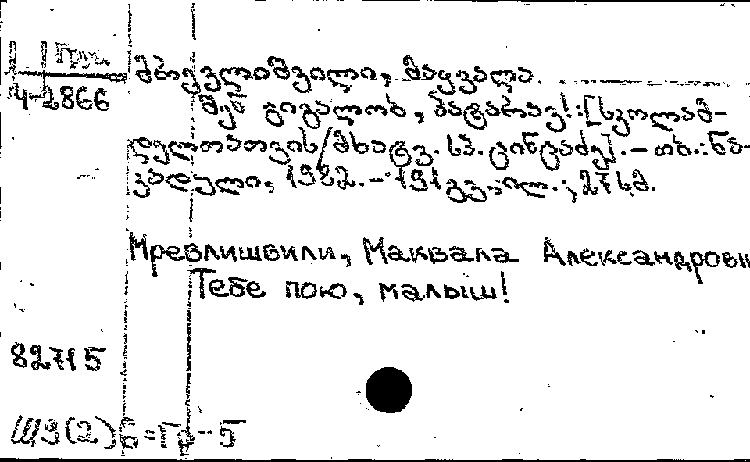 Груз.
4-2866
მრევლიშვილი, მაყვალა.
შენ გიგალობ, პატარავ!: [სკოლამ-
დელთათვის/მხატვ. ს. ცინცაძე]. – თბ.: ნა-
კადული, 1982. – 191გვ., ილ.; 27სმ.
Мревлишвили, Маквала Александровн
Тебе пою, малыш!
82715
Ш9(2)6=Гр-5